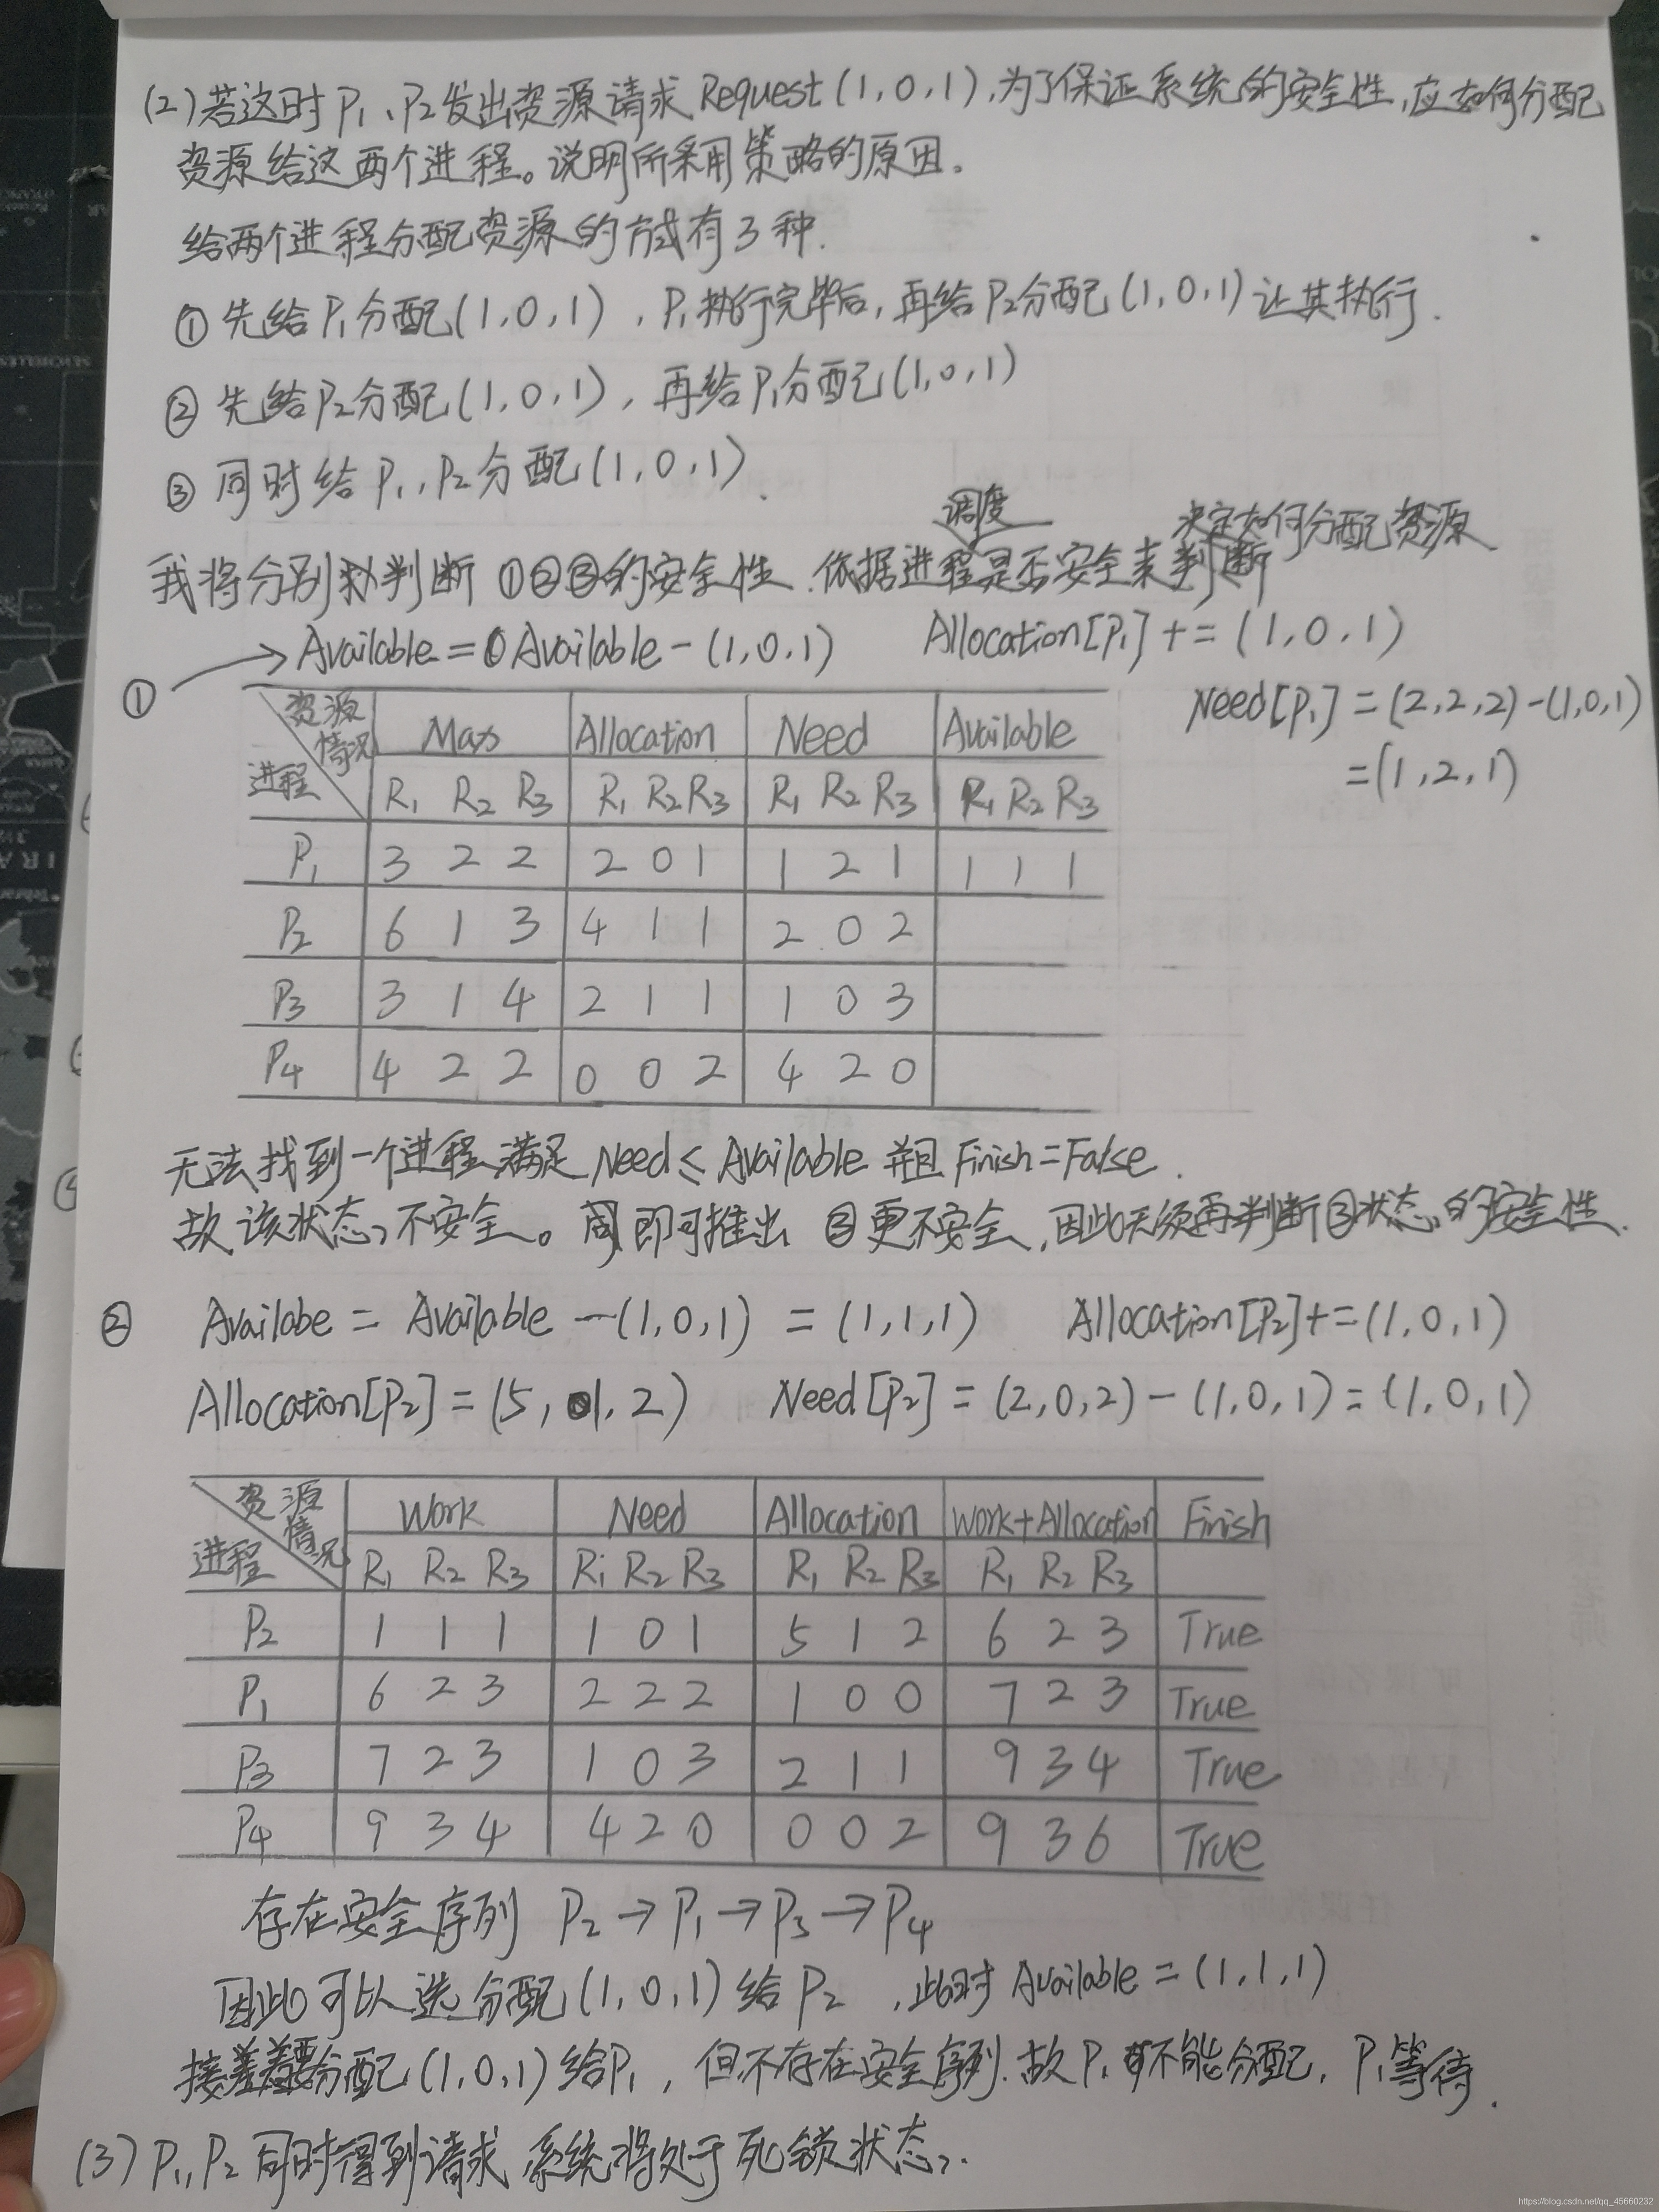 (2)若这时P₁、P₂发出资源请求Request(1,0,1),为了保证系统的安全性,应如何分配
资源给这两个进程。说明所采用策略的原因.
给两个进程分配资源的方式有3种.
① 先给P₁分配(1,0,1),P₁执行完毕后,再给P₂分配(1,0,1)让其执行.
② 先给P₂分配(1,0,1),再给P₁分配(1,0,1)
③ 同时给P₁,P₂分配(1,0,1).
调度 决定如何分配资源
我将分别判断①②③的安全性.依据进程是否安全来判断
Available=Available-(1,0,1) Allocation[P₁]+=(1,0,1)
① Need[P₁]=(2,2,2)-(1,0,1)
=(1,2,1)
资源情况 Max Allocation Need Available
进程 R₁ R₂ R₃ R₁ R₂ R₃ R₁ R₂ R₃ R₁ R₂ R₃
P₁ 3 2 2 2 0 1 1 2 1 1 1 1
P₂ 6 1 3 4 1 1 2 0 2
P₃ 3 1 4 2 1 1 1 0 3
P₄ 4 2 2 0 0 2 4 2 0
无法找到一个进程满足Need≤Available并且Finish=False.
故该状态不安全。即可推出③更不安全,因此无须再判断③状态的安全性.
② Availabe = Available -(1,0,1) = (1,1,1) Allocation[P₂]+=(1,0,1)
Allocation[P₂]=(5,1,2) Need[P₂]=(2,0,2)-(1,0,1)=(1,0,1)
资源情况 Work Need Allocation Work+Allocation Finish
进程 R₁ R₂ R₃ R₁ R₂ R₃ R₁ R₂ R₃ R₁ R₂ R₃
P₂ 1 1 1 1 0 1 5 1 2 6 2 3 True
P₁ 6 2 3 2 2 2 1 0 0 7 2 3 True
P₃ 7 2 3 1 0 3 2 1 1 9 3 4 True
P₄ 9 3 4 4 2 0 0 0 2 9 3 6 True
存在安全序列 P₂→P₁→P₃→P₄
因此可以先分配(1,0,1)给P₂,此时Available=(1,1,1)
接着要分配(1,0,1)给P₁,但不存在安全序列.故P₁不能分配,P₁等待.
(3)P₁,P₂同时得到请求,系统将处于死锁状态.
https://blog.csdn.net/qq_45660232